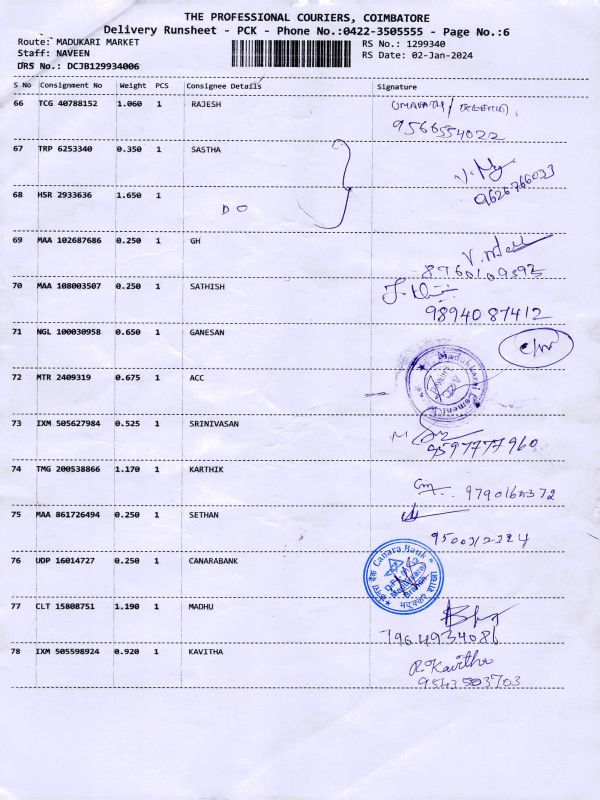 THE PROFESSIONAL COURIERS, COIMBATORE
Delivery Runsheet - PCK - Phone No.:0422-3505555 - Page No.:6
Route: MADUKARI MARKET
RS No.: 1299340
Staff: NAVEEN
RS Date: 02-Jan-2024
DRS No.: DCJB129934006
S No Consignment No Weight PCS Consignee Details Signature
66 TCG 40788152 1.060 1 RAJESH
9566554022
67 TRP 6253340 0.350 1 SASTHA
9626766023
68 HSR 2933636 1.650 1
DO
69 MAA 102687686 0.250 1 GH
70 MAA 108003507 0.250 1 SATHISH
9894087412
71 NGL 100030958 0.650 1 GANESAN
72 MTR 2409319 0.675 1 ACC
73 IXM 505627984 0.525 1 SRINIVASAN
9597777960
74 TMG 200538866 1.170 1 KARTHIK
75 MAA 861726494 0.250 1 SETHAN
76 UDP 16014727 0.250 1 CANARABANK
Canara Bank
77 CLT 15808751 1.190 1 MADHU
7964934086
78 IXM 505598924 0.920 1 KAVITHA
R. Kavitha
9543503703